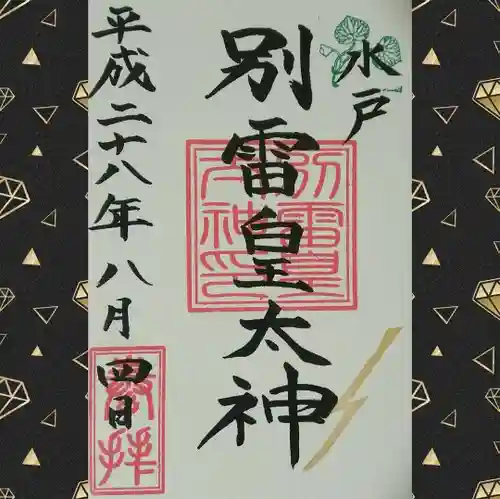 水戸
別雷皇太神
平成二十八年八月四日
別雷皇太神印
敬拝